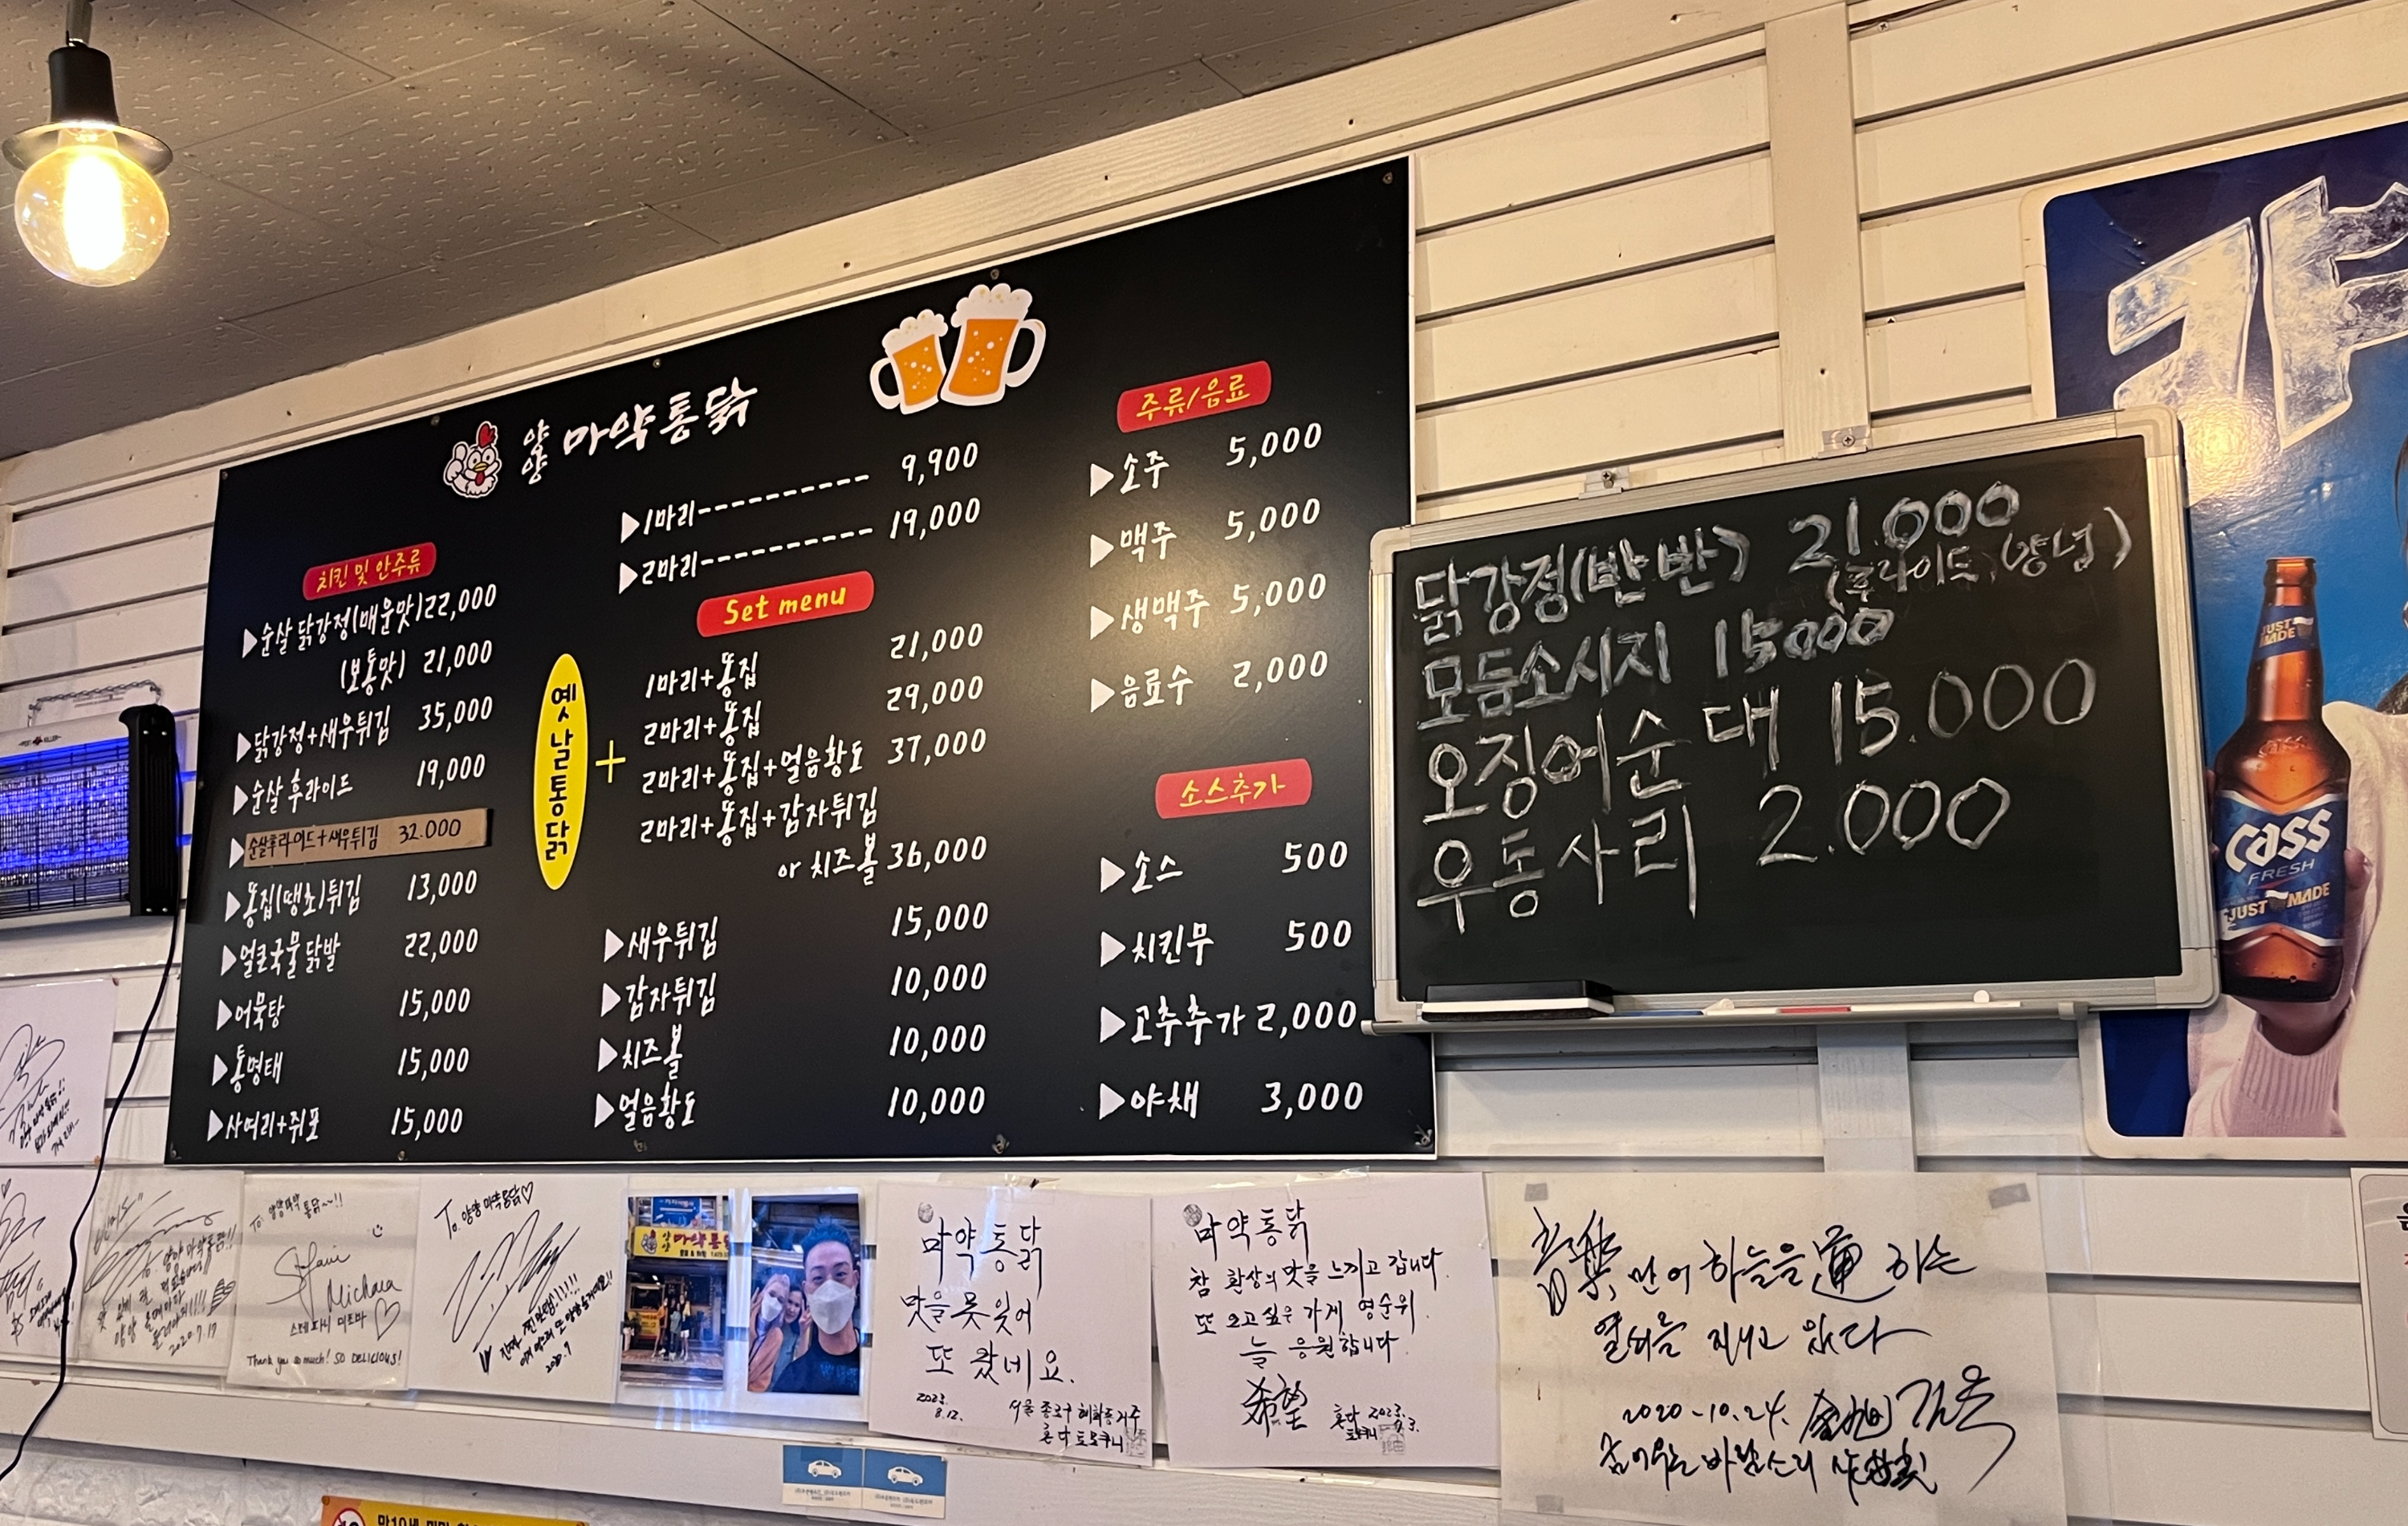 양양 마약통닭
▶1마리---------- 9,900
▶2마리---------- 19,000
치킨 및 안주류
▶순살 닭강정(매운맛)22,000
(보통맛) 21,000
▶닭강정+새우튀김 35,000
▶순살 후라이드 19,000
▶순살후라이드+새우튀김 32.000
▶똥집(땡초)튀김 13,000
▶얼큰국물 닭발 22,000
▶어묵탕 15,000
▶통명태 15,000
▶사여리+쥐포 15,000
Set menu
옛날통닭
+
1마리+똥집 21,000
2마리+똥집 29,000
2마리+똥집+얼음황도 37,000
2마리+똥집+감자튀김
or 치즈볼 36,000
▶새우튀김 15,000
▶감자튀김 10,000
▶치즈볼 10,000
▶얼음황도 10,000
주류/음료
▶소주 5,000
▶맥주 5,000
▶생맥주 5,000
▶음료수 2,000
소스추가
▶소스 500
▶치킨무 500
▶고추추가 2,000
▶야채 3,000
닭강정(반반) 21.000
(후라이드, 양념)
모듬소시지 15000
오징어순대 15.000
우동사리 2.000
JUST MADE
Cass
FRESH
JUST MADE
To. 양양마약통닭~!!
Michova
스테파니 미초바
Thank you so much! SO DELICIOUS!
To. 양양 마약통닭♡
2020.7.17
마약통닭
마약통닭
맛을 못 잊어
또 왔네요.
2023.
8.12.
서울 종로구 혜화동 거주
마약통닭
참 환상의 맛을 느끼고 갑니다.
또 오고싶은 가게 영순위.
늘 응원합니다.
希望
2023.
音樂, 먼 어 하늘을 運 하는
열쇠를 지니고 있다
2020-10.24.